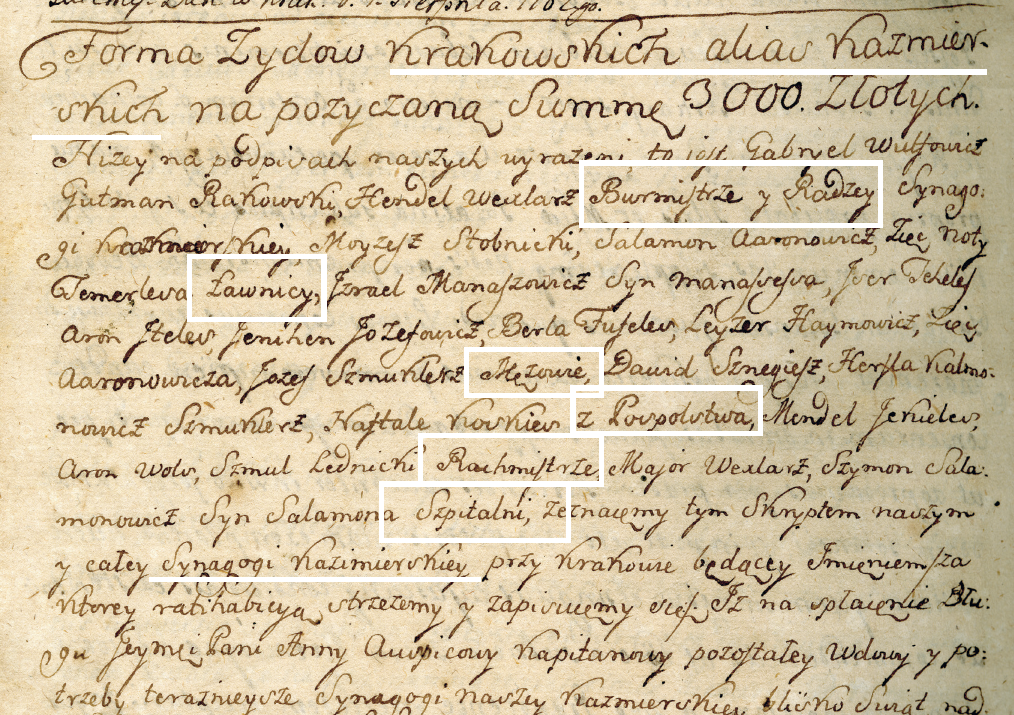 Forma Zydow Krakowskich alias Kazmier-
skich na pozyczaną Summę 3000. Złotych.
Nizey na podpisach naszych wyrazeni, to jest Gabryel Wulfowicz
Gutman Rakowski, Hendel Wexlarz Burmistrze y Radzey Synago:
gi Kazimierskiey, Moyzesz Stobnicki, Salamon Aaronowicz, Zięć Noty
Temerlesa Ławnicy, Jzrael Manaszowicz Syn Manassesa,
Aron Jozefowicz, Berla Leyzer Haymowicz, Zięć
Aaronowicza, Jozef Szmuklerz Męzowie, Dawid Hersla Kalmo-
nowicz Szmuklerz, Naftale z Pospolstwa, Mendel Jekieles,
Aron Wols, Szmul Lednicki Rachmistrze, Major Wexlarz, Szymon Sala-
monowicz Syn Salamona Szpitalni, zeznaięmy tym Skryptem naszym
y całey Synagogi Kazimierskiey przy Krakowie będącey Jmięniem za
ktorey ratihabicyą strzezemy y zapisuięmy się Jz na spłacenie Dłu:
gu Jeymci Pani Anny Kapitanowy pozostałey Wdowy y po:
trzeby teraznieysze Synagogi naszey Kazmierskiey blisko Swiąt nad